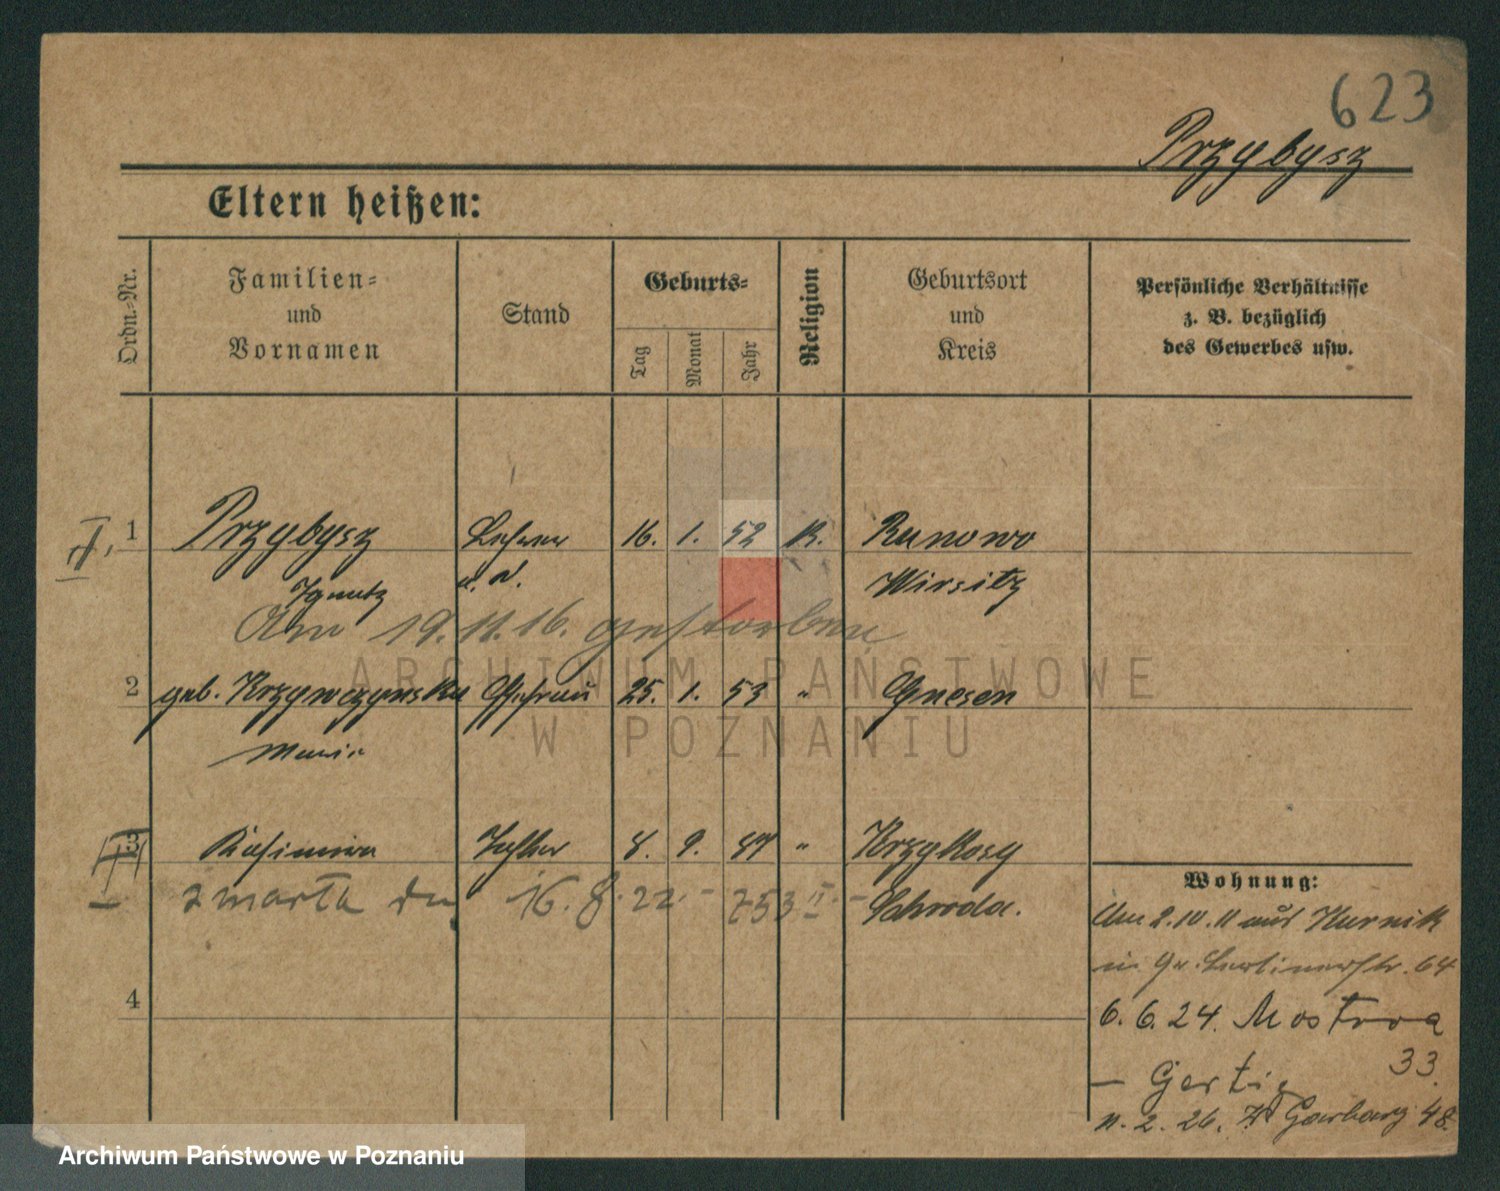 623
Przybysz
Eltern heißen:
Ordn.-Nr.
Familien-
und
Vornamen
Stand
Geburts-
Tag
Monat
Jahr
Religion
Geburtsort
und
Kreis
Persönliche Verhältnisse
z. B. bezüglich
des Gewerbes usw.
1 Przybysz Lehrer 16. 1. 52 K. Runowo
Ignatz a. D. Wirsitz
Am 19. 11. 16. gestorben
2 geb. Krzywczynska Ehefrau 25. 1. 53 " Gnesen
Maria
3 Kasimira Tochter 8. 9. 87 " Krzykosy
zmarła 16. 8. 22. - 753 II - Schroda.
4
Wohnung:
Am 2. 10. 11 aus Kurnik
in Gr. Berlinerstr. 64
6. 6. 24. Mostowa
33.
- Gertig
11. 2. 26. Garbary 48.
ARCHIWUM PAŃSTWOWE
W POZNANIU
Archiwum Państwowe w Poznaniu